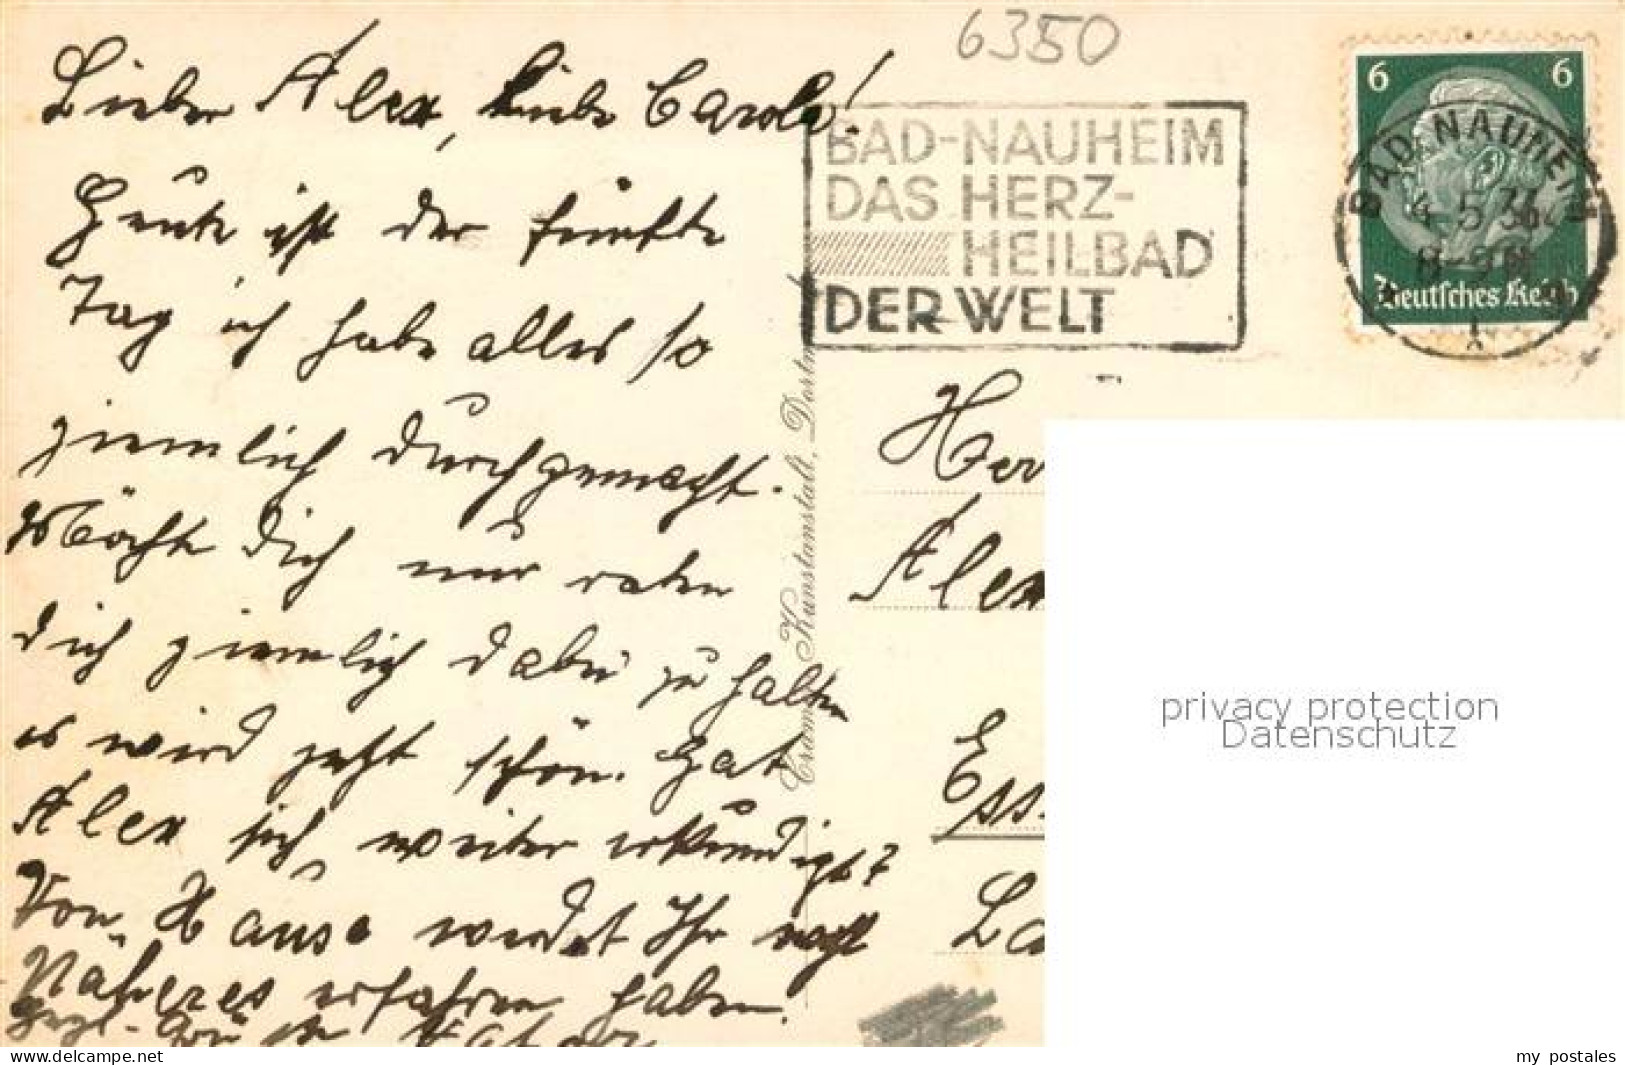 6350
Lieber Alex, liebe Carola!
Heute ist der fünfte
Tag ich habe alles so
ziemlich durchgemacht.
Möchte Dich nur raten
Dich ziemlich dabei zu halten
es wird jetzt schön. Hat
Alex sich weiter erkundigt?
Von Hause werdet Ihr wohl
Näheres erfahren haben.
Herzl. Grüße Vater
BAD-NAUHEIM
DAS HERZ-
HEILBAD
DER WELT
6 6
BAD NAUHEIM
Deutsches Reich
Cramers Kunstanstalt, Dortm
Her
Alex
Ess
La
privacy protection
Datenschutz
delcampe.net
my_postales